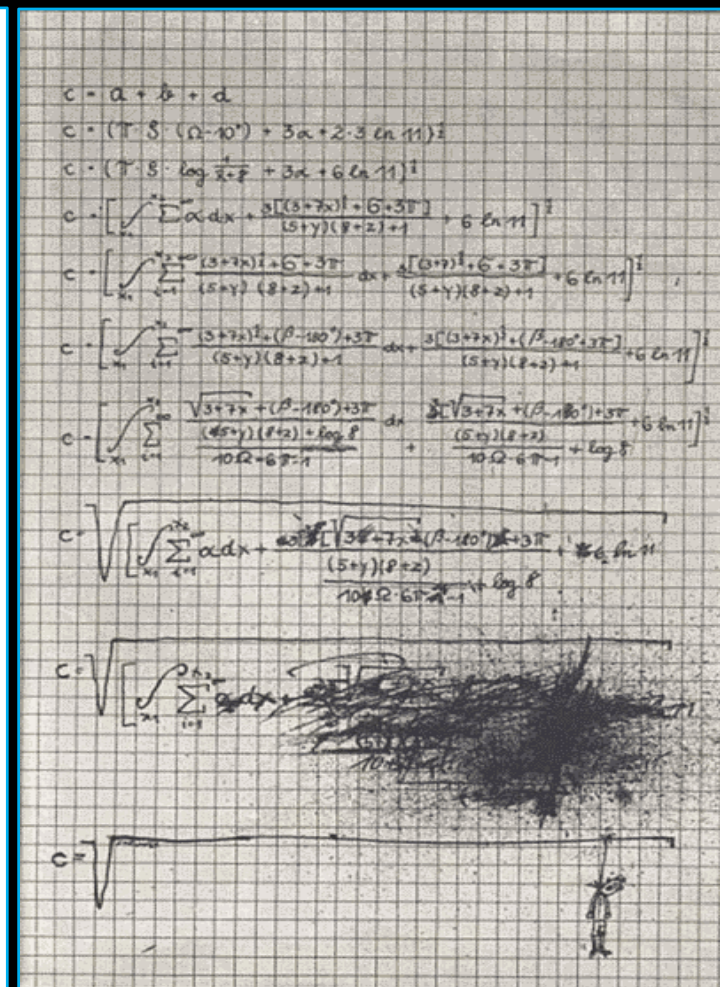 c = a + b + d
c = (π · S · (Ω-10°) + 3a + 2·3 ln 11)
c = (π · S · log + 3α + 6 ln 11)
c = [∫ x₁ ∑ α dx + 3[(3+7x) + 6 + 3π] / (5+y)(8+z)+1 + 6 ln 11]
c = [∫ x₁ x₂ ∑ i=1 ∞ (3+7x) + 6 + 3π / (5+y) (8+z)+1 dx + 3[(3+7) + 6 + 3π] / (5+y)(8+z)+1 + 6 ln 11]
c = [∫ x₁ x₂ ∑ i=1 ∞ (3+7x) + (β-180°)+3π / (5+y)(8+z)+1 dx + 3[(3+7x) + (β-180°+3π] / (5+y)(8+z)+1 + 6 ln 11]
c = [∫ x₁ x₂ ∑ i=1 ∞ √3+7x + (β-180°)+3π / (5+y)(8+z) + log 8 / 10Ω-6π-1 dx + 3[√3+7x + (β-180°)+3π / (5+y)(8+z) / 10Ω-6π-1 + log 8 + 6 ln 11]
c = √ [∫ x₁ x₂ ∑ i=1 ∞ α dx + 3 [√3+7x (β-180°) +3π / (5+y)(8+z) / 10Ω·6π-1 + log 8 + 6 ln 11
c = √ [∫ x₁ x₂ ∑ i=1 ∞ dx +
c = √